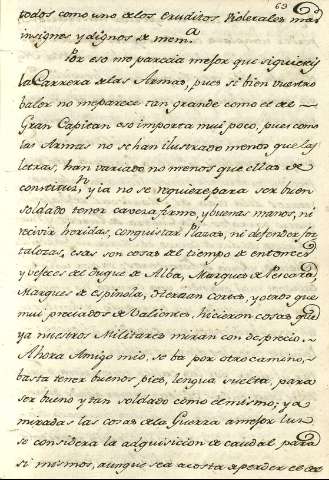 63
todos como uno de los Eruditos Violetales mas
insignes y dignos de mem.a
Por eso me parecia mejor que siguieseis
la Carrera de las Armas, pues si bien vuestro
valor no me parece tan grande como el de el
Gran Capitan eso importa mui poco, pues como
las Armas no se han ilustrado menos que las
letras, han variado no menos que ellas de
constituz.n, y ia no se requiere para ser buen
soldado tener caveza firme, y buenas manos, ni
recivir heridas, conquistar Plazas, ni defender for
talezas, esas son cosas del tiempo de entonces
y vejeces del duque de Alba, Marques de Pescara
Marques de espinola, Hernan Cortes, y otros que
mui preciados de Valientes, hicieron cosas que
ya nuestros Militares miran con desprecio.
Ahora Amigo mio, se ba por otro camino,
basta tener buenos pies, lengua suelta, para
ser bueno y tan soldado como el mismo; ya
miradas las cosas de la Guerra a mejor luz
se considera la adquisicion de caudal para
si mismos, aunque sea acosta de perder el de